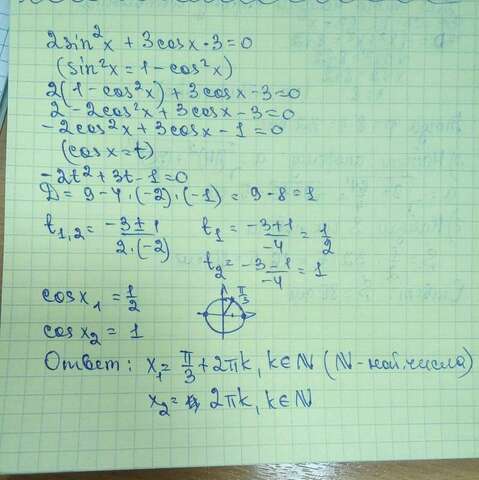 2sin²x + 3cosx - 3 = 0
(sin²x = 1 - cos²x)
2(1 - cos²x) + 3cosx - 3 = 0
2 - 2cos²x + 3cosx - 3 = 0
-2cos²x + 3cosx - 1 = 0
(cosx = t)
-2t² + 3t - 1 = 0
D = 9 - 4·(-2)·(-1) = 9 - 8 = 1
t₁,₂ = (-3 ± 1)/(2·(-2)) t₁ = (-3+1)/(-4) = 1/2
t₂ = (-3-1)/(-4) = 1
cosx₁ = 1/2 π/3
cosx₂ = 1
Ответ: x₁ = π/3 + 2πk, k∈ℕ (ℕ - нат. числа)
x₂ = 2πk, k∈ℕ